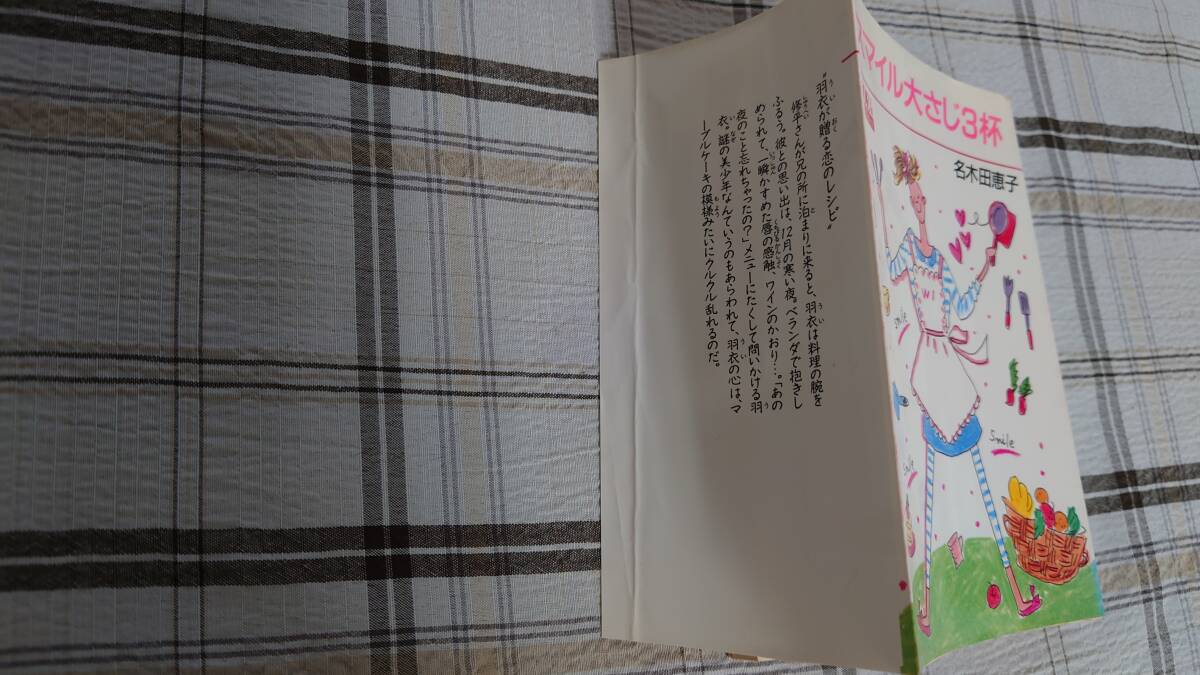 スマイル大さじ3杯
名木田恵子
smile
Smile
Smile
WI
"羽衣が贈る恋のレシピ"
修平さんが兄の所に泊まりに来ると、羽衣は料理の腕を
ふるう。彼との思い出は、12月の寒い夜。ベランダで抱きし
められて、一瞬かすめた唇の感触、ワインのかおり…。「あの
夜のこと忘れちゃったの?」メニューにたくして問いかける羽
衣。謎の美少年なんていうのもあらわれて、羽衣の心は、マ
ーブルケーキの模様みたいにクルクル乱れるのだ。